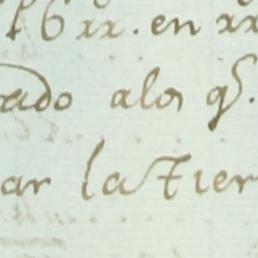 16 xx. en xx
ado alos qͤ.
ar la Tier